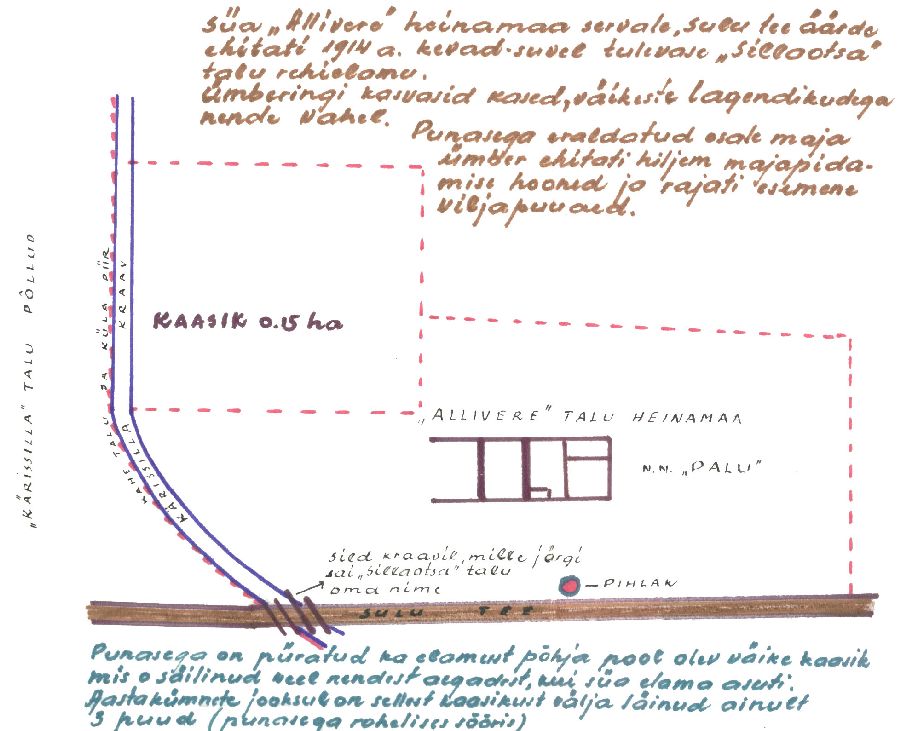 Siia „Allivere" heinamaa servale, Sulu tee äärde
ehitati 1914 a. kevad-suvel tulevase „Sillaotsa"
talu rehielamu.
Ümberingi kasvasid kased, väikeste lagendikudega
nende vahel.
Punasega eraldatud osale maja
ümber ehitati hiljem majapida-
mise hooned ja rajati esimene
viljapuuaed.
„KÄRISSILLA" TALU PÕLLUD
KAHE TALU JA KÜLA PIIR
KÄRISSILLA KRAAV
KAASIK 0.15 ha
„ALLIVERE" TALU HEINAMAA
N.N. „PALU"
Sild kraavil, mille järgi
sai „Sillaotsa" talu
oma nime
PIHLAK
SULU TEE
Punasega on piiratud ka elamust põhja pool olev väike kaasik
mis o säilinud veel nendest aegadest, kui siia elama asuti.
Aastakümnete jooksul on sellest kaasikust välja läinud ainult
3 puud (punasega rohelises sõõris)